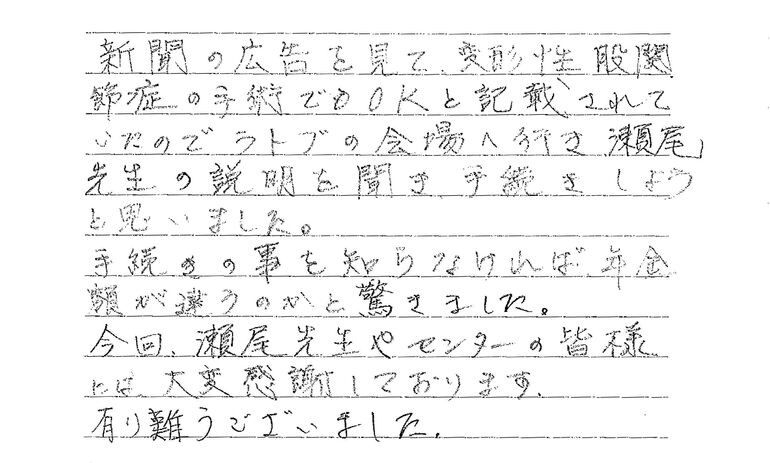 新聞の広告を見て、変形性股関
節症の手術でもOKと記載されて
いたのでラトブの会場へ行き瀬尾
先生の説明を聞き手続きしよう
と思いました。
手続きの事を知らなければ年金
額が違うのかと驚きました。
今回、瀬尾先生やセンターの皆様
には、大変感謝しております。
有り難うございました。